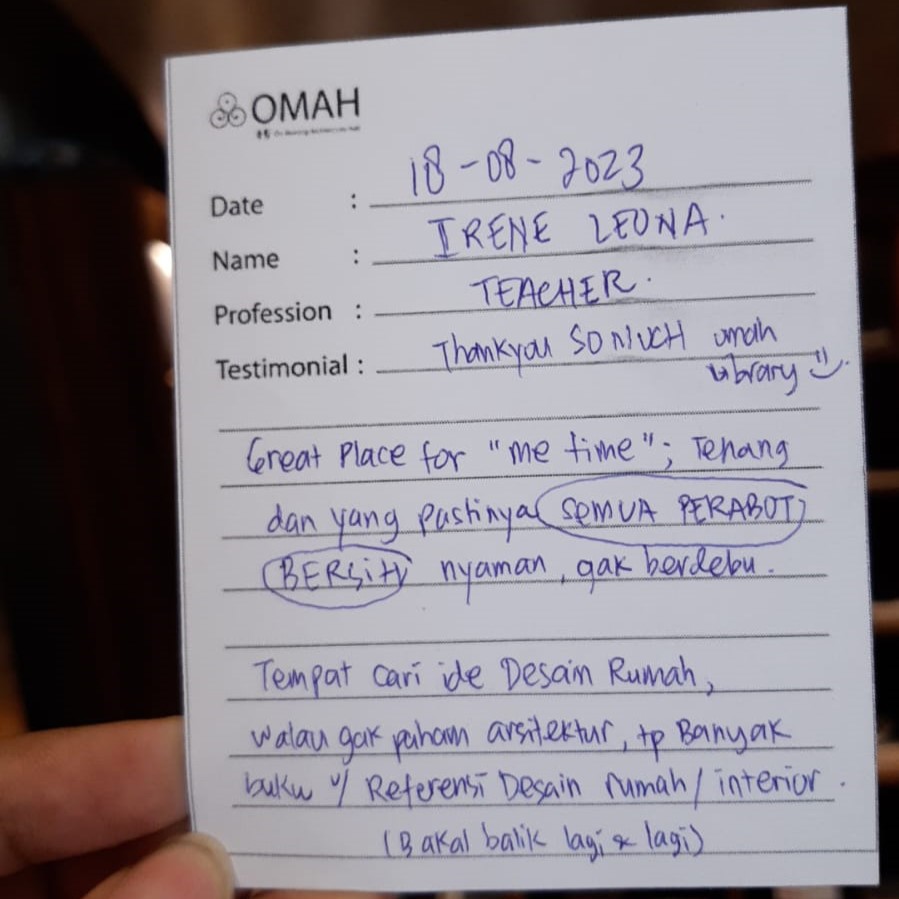 OMAH
Date : 18-08-2023
Name : IRENE LEONA.
Profession : TEACHER.
Testimonial : Thankyou SO MUCH omah
Library
Great Place for "me time"; Tenang
dan yang pastinya SEMUA PERABOT
BERSiH nyaman, gak berdebu.
Tempat cari ide Desain Rumah,
walau gak paham arsitektur, tp Banyak
buku u/ Referensi Desain rumah/interior.
(Bakal balik lagi & lagi)